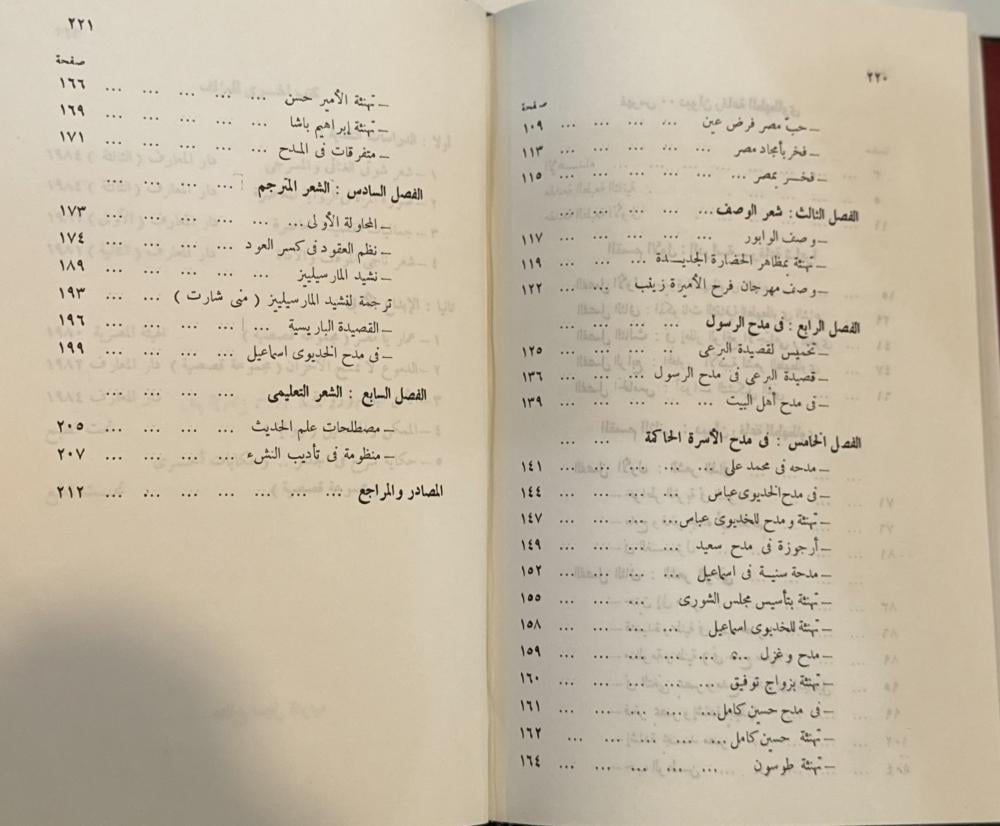 ٢٢٠
صفحة
ــ حب مصر فرض عين ... ... ... ... ١٠٩
ــ فخر بأمجاد مصر ... ... ... ... ١١٣
ــ فخر بمصر ... ... ... ... ... ١١٥
الفصل الثالث : شعر الوصف ... ... ... ...
ــ وصف الوابور ... ... ... ... ١١٧
ــ تهنئة بمظاهر الحضارة الجديدة ... ... ١١٩
ــ وصف مهرجان فرح الأميرة زينب ... ... ١٢٢
الفصل الرابع : فى مدح الرسول ... ... ... ...
ــ تخميس لقصيدة البرعى ... ... ... ... ١٢٥
ــ قصيدة البرعى فى مدح الرسول ... ... ... ١٣٦
ــ فى مدح أهل البيت ... ... ... ... ١٣٩
الفصل الخامس : فى مدح الأسرة الحاكمة ... ...
ــ مدحه فى محمد على ... ... ... ... ... ١٤١
ــ فى مدح الخديوى عباس ... ... ... ... ١٤٤
ــ تهنئة ومدح للخديوى عباس ... ... ... ... ١٤٧
ــ أرجوزة فى مدح سعيد ... ... ... ... ١٤٩
ــ مدحة سنية فى اسماعيل ... ... ... ... ١٥٢
ــ تهنئة بتأسيس مجلس الشورى ... ... ... ١٥٥
ــ تهنئة للخديوى اسماعيل ... ... ... ... ١٥٨
ــ مدح وغزل ... ... ... ... ... ١٥٩
ــ تهنئة بزواج توفيق ... ... ... ... ١٦٠
ــ فى مدح حسين كامل ... ... ... ... ... ١٦١
ــ تهنئة حسين كامل ... ... ... ... ... ١٦٢
ــ تهنئة طوسون ... ... ... ... ... ١٦٤
٢٢١
صفحة
ــ تهنئة الأمير حسن ... ... ... ... ... ١٦٦
ــ تهنئة إبراهيم باشا ... ... ... ... ... ١٦٩
ــ متفرقات فى المدح ... ... ... ... ... ١٧١
الفصل السادس : الشعر المترجم ... ... ... ...
ــ المحاولة الأولى ... ... ... ... ... ... ١٧٣
ــ نظم العقود فى كسر العود ... ... ... ... ١٧٤
ــ نشيد المارسيلييز ... ... ... ... ... ١٨٩
ترجمة لنشيد المارسيلييز ( منى شارت ) ... ... ١٩٣
ــ القصيدة الباريسية ... ... ... ... ١٩٦
ــ فى مدح الخديوى اسماعيل ... ... ... ١٩٩
الفصل السابع : الشعر التعليمى ... ... ... ...
ــ مصطلحات علم الحديث ... ... ... ... ٢٠٥
ــ منظومة فى تأديب النشء ... ... ... ... ٢٠٧
المصادر والمراجع ... ... ... ... ... ... ... ٢١٢